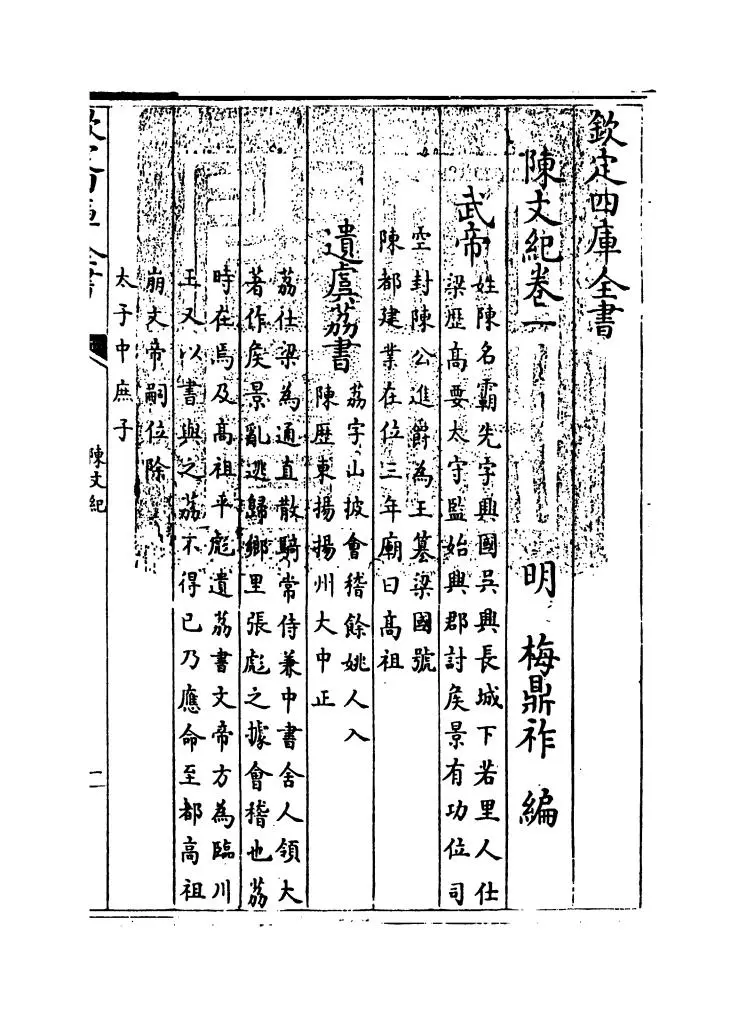 欽定四庫全書
陳文紀卷一
明 梅鼎祚 編
武帝
姓陳名霸先字興國吳興長城下若里人仕
梁歴高要太守監始興郡討矦景有功位司
空封陳公進爵為王簒梁國號
陳都建業在位三年廟曰高祖
遺虞荔書
荔字山披會稽餘姚人入
陳歴東揚揚州大中正
荔仕梁為通直散騎常侍兼中書舍人領大
著作矦景亂逃歸鄉里張彪之據會稽也荔
時在焉及高祖平彪遺荔書文帝方為臨川
王又以書與之荔不得已乃應命至都高祖
崩文帝嗣位除
太子中庶子
欽定四庫全書
陳文紀
一